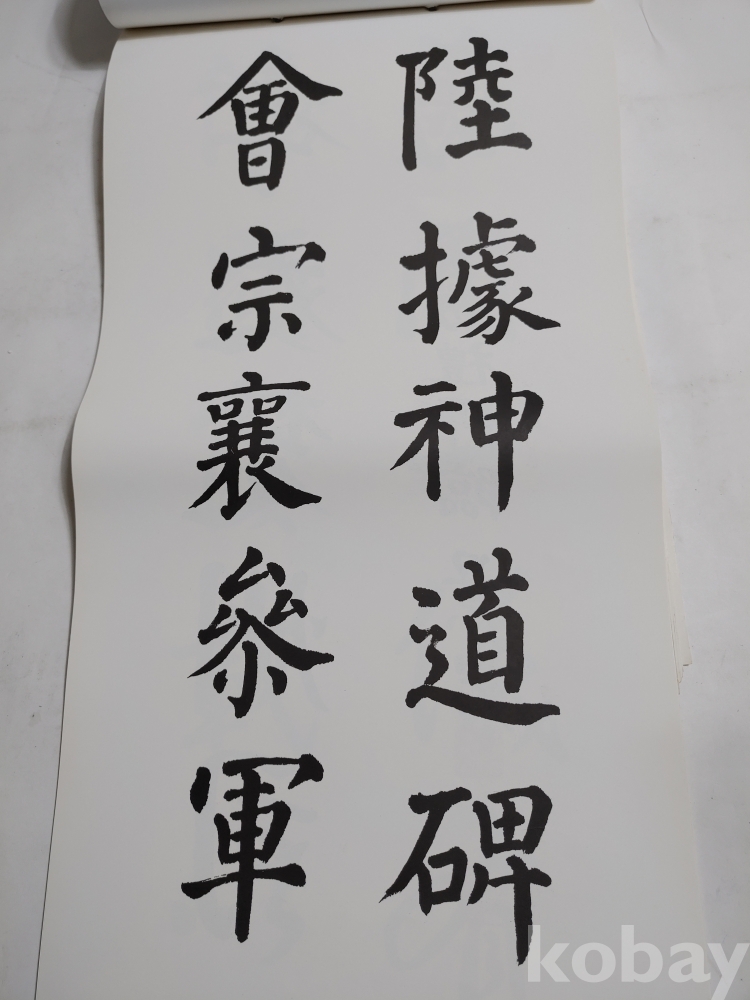 陸據神道碑
會宗襄參軍
kobay